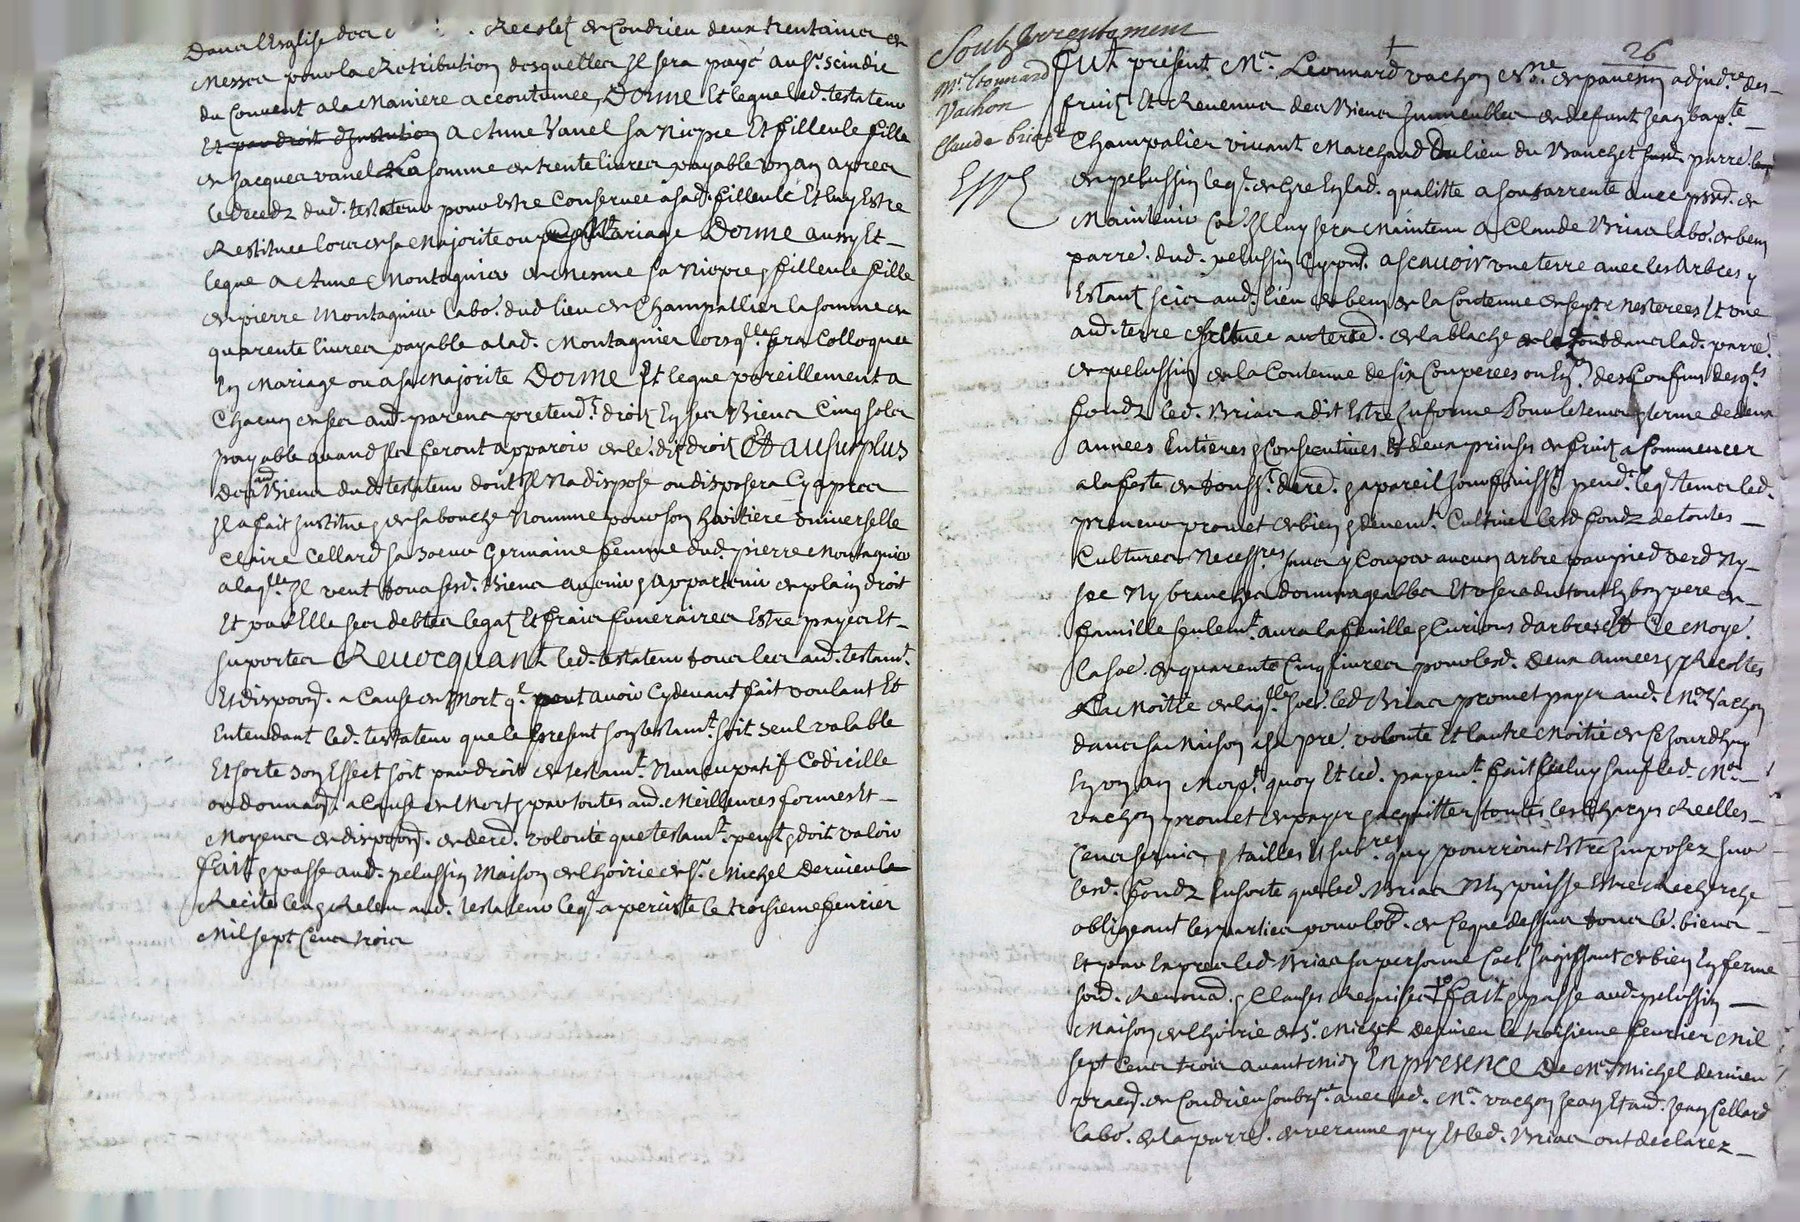 Dans l'Esglise des Recoletz de Condrieu deux trentaines de
Messes pour la Retribution desquelles Jl sera payé au sr. scindic
du Convent a la Maniere accoutumée, Donne Et legue led. testateur
Et par droit d'Jnstitution a Anne Vanel sa Niepce Et filleule fille
de Jacques vanel La somme de trente livres payable un an apres
le decedz dud. testateur pour Estre Conservée a sad. filleule Et luy Estre
Restituee lors de sa Majorite ou Mariage Donne aussy Et
legue a Anne Montagnier de mesme sa Niepce & filleule fille
de pierre Montagnier labo. dud lieu de Champallier la somme de
quarente livres payable a lad. Montagnier lorsqlle. sera Colloquée
En Mariage ou a sa Majorité Donne Et legue pareillement a
Chacun de ses aud. parens pretendt. droit En ses Biens Cinq solz
payable quand Jlz feront apparoir de le. dt. droit Et au surplus
des aud Biens dud testateur dont Jl Na dispose ou disposera Cy apres
Jl a fait Jnstitue & de sa bouche Nomme pour son heritiere universelle
Claire Cellard sa soeur Germaine femme dud. pierre Montagnier
a laqlle. Jl veut tous sesd. Biens avenir & appartenir de plain droit
Et par Elle ses debtes legatz Et fraix funeraires Estre payes Et
suportes Revocquant led. testateur tous les aud. testamt.
Et dispoon. a Cause de Mort q. peut avoir Cydevant fait voulant Et
Entendant led. testateur que le present son testamt. soit seul valable
Et sorte son Effect soit par droit de testamt. Nuncupatif Codicille
ou donnaon. a Cause de Mort & par toutes aud. Meilleures formes Et
Moyens de dispoon. de dere. volonté que testamt. peut & doit valoir
fait & passe aud. pelussin Maison de lhoirie de sr. Michel Dervieu le
Récité leu & Releu aud. testateur leql a percisté le troisieme fevrier
Mil sept Cens trois
Soubzarrentement
Mr. Leonnard
Vachon
Claude briat
Expé
26
Fut présent Mr. Leonnard vachon Nre. de pavezin adjudre. des
fruitz Et Revenus des Biens Jmmeubles de defunt Jean bapte.
Champalier vivant Marchand du lieu du Banchet parre.
de pelussin leql. de Gre En lad. qualitte a sousarrenté avec pmse. de
Maintenir Coe. Jl luy sera Maintenu a Claude Briat labo. de ben
parre. dud. pelussin Cy pnt. ascavoir une terre avec les Arbres y
Estant scize aud. lieu de ben de la Contenue de sept Mesterees Et une
aud. terre scituee au terre. de la blache dans lad. parre.
de pelussin de la Contenue de six Couperees ou En. des Confins desqs
fondz led. Briat a dit Estre Jnforme Pour le tems & terme de deux
années Entieres & Consecutives Et deux prinses de fruitz a Commencer
a la feste de touss. dere. & a pareil jour finisst pendt. leql. tems led.
preneur promet de bien & deuemt. Cultiver lesd fondz de toutes
Cultures Necessres sans y Couper aucun arbre par pied verd Ny
sec Ny branches dommageables Et usera du tout En bon pere de
famille seulemt. aura la feuille & Curions d'arbres Et Ce Moye.
la soe. de quarente Cinq livres pour lesd. deux années & Recoltes
La Moitié de laqlle. soe. led Briat promet payer aud. Me. Vachon
dans sa Maison a sa pre. volonté Et lautre Moitié de Ce Jourdhuy
En un an Moyet. quoy Et led. payemt. fait led. Me.
vachon promet de payer & acquitter toutes les Charges Réelles
Cens servis & tailles Et subres. quy pourront Estre Jmposez sur
lesd. fondz Ensorte que led. Briat Ny puisse Estre Recherché
obligeant les parties pour lobon. de Ce que dessus tous le. biens
Et par Expres led. Briat sa personne Coe. Jagissant de bien En ferme
soud. Renond. & Clauses Requises fait & passe aud. pelussin
Maison de lhoirie de sr. Michel dervieu le troisieme fevrier Mil
sept Cens trois avant Midy En presence de Mr. Michel dervieu
pratn. de Condrieu soubsne. avec led. Me. vachon Jean Et aud. Jean Cellard
labo. de la parre. de veranne quy Et led. Briat ont declarez